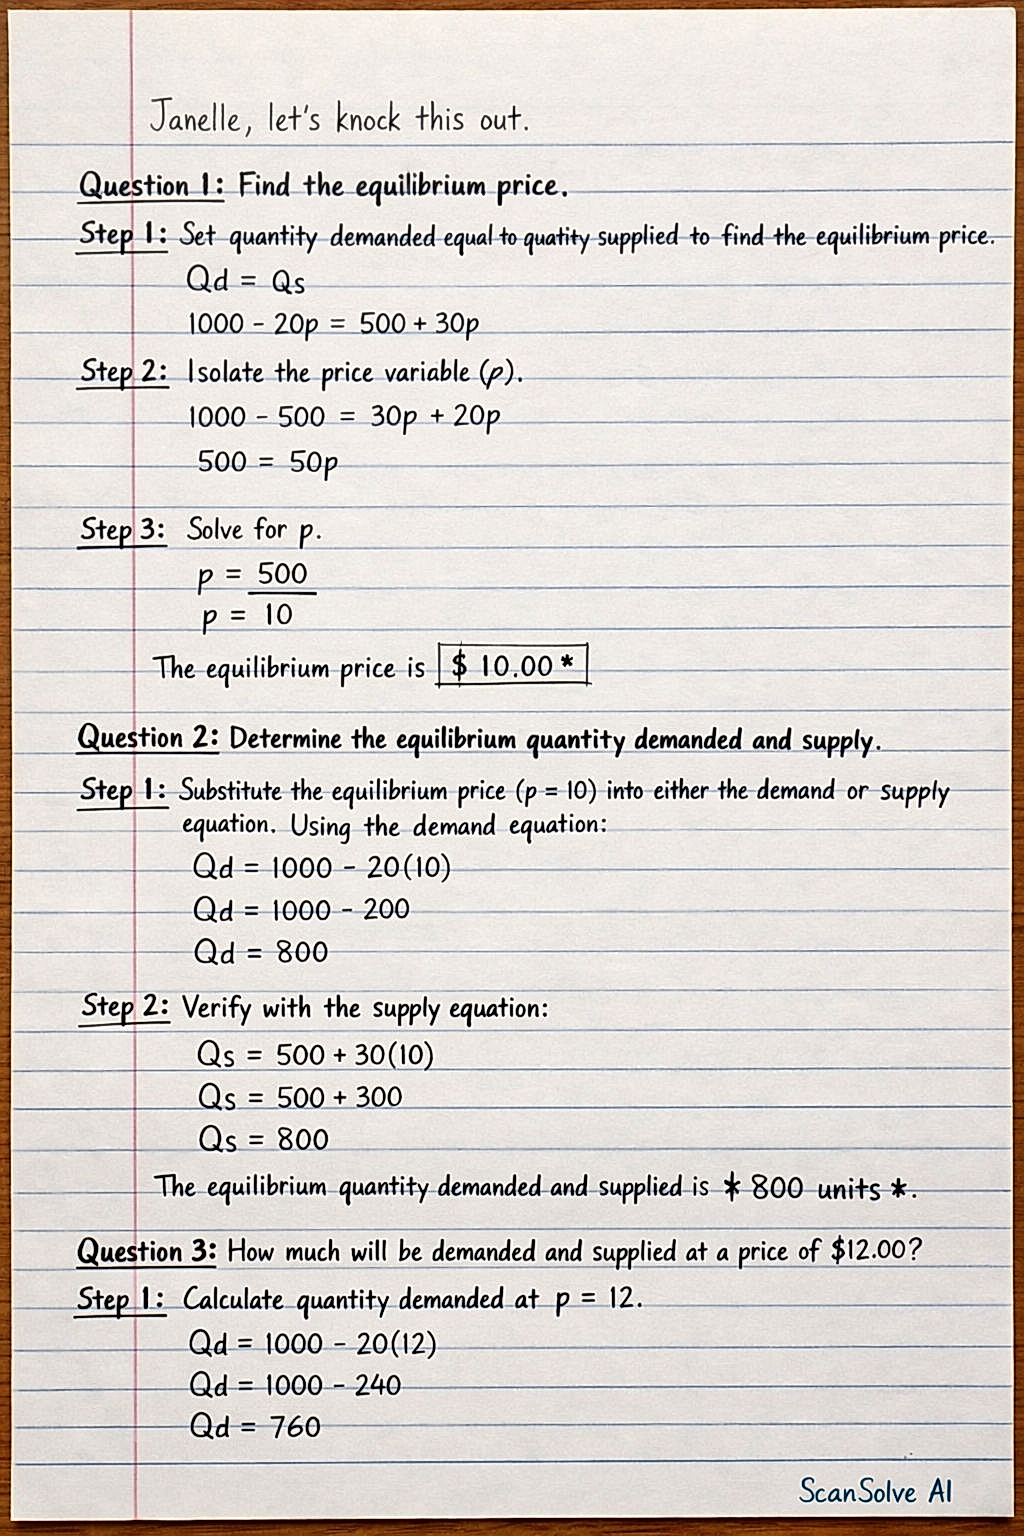 Janelle, let's knock this out.
Question 1: Find the equilibrium price.
Step 1: Set quantity demanded equal to quatity supplied to find the equilibrium price.
Qd = Qs
1000 - 20p = 500 + 30p
Step 2: Isolate the price variable (p).
1000 - 500 = 30p + 20p
500 = 50p
Step 3: Solve for p.
p = 500
p = 10
The equilibrium price is $ 10.00 *
Question 2: Determine the equilibrium quantity demanded and supply.
Step 1: Substitute the equilibrium price (p = 10) into either the demand or supply
equation. Using the demand equation:
Qd = 1000 - 20(10)
Qd = 1000 - 200
Qd = 800
Step 2: Verify with the supply equation:
Qs = 500 + 30(10)
Qs = 500 + 300
Qs = 800
The equilibrium quantity demanded and supplied is * 800 units *.
Question 3: How much will be demanded and supplied at a price of $12.00?
Step 1: Calculate quantity demanded at p = 12.
Qd = 1000 - 20(12)
Qd = 1000 - 240
Qd = 760
ScanSolve AI